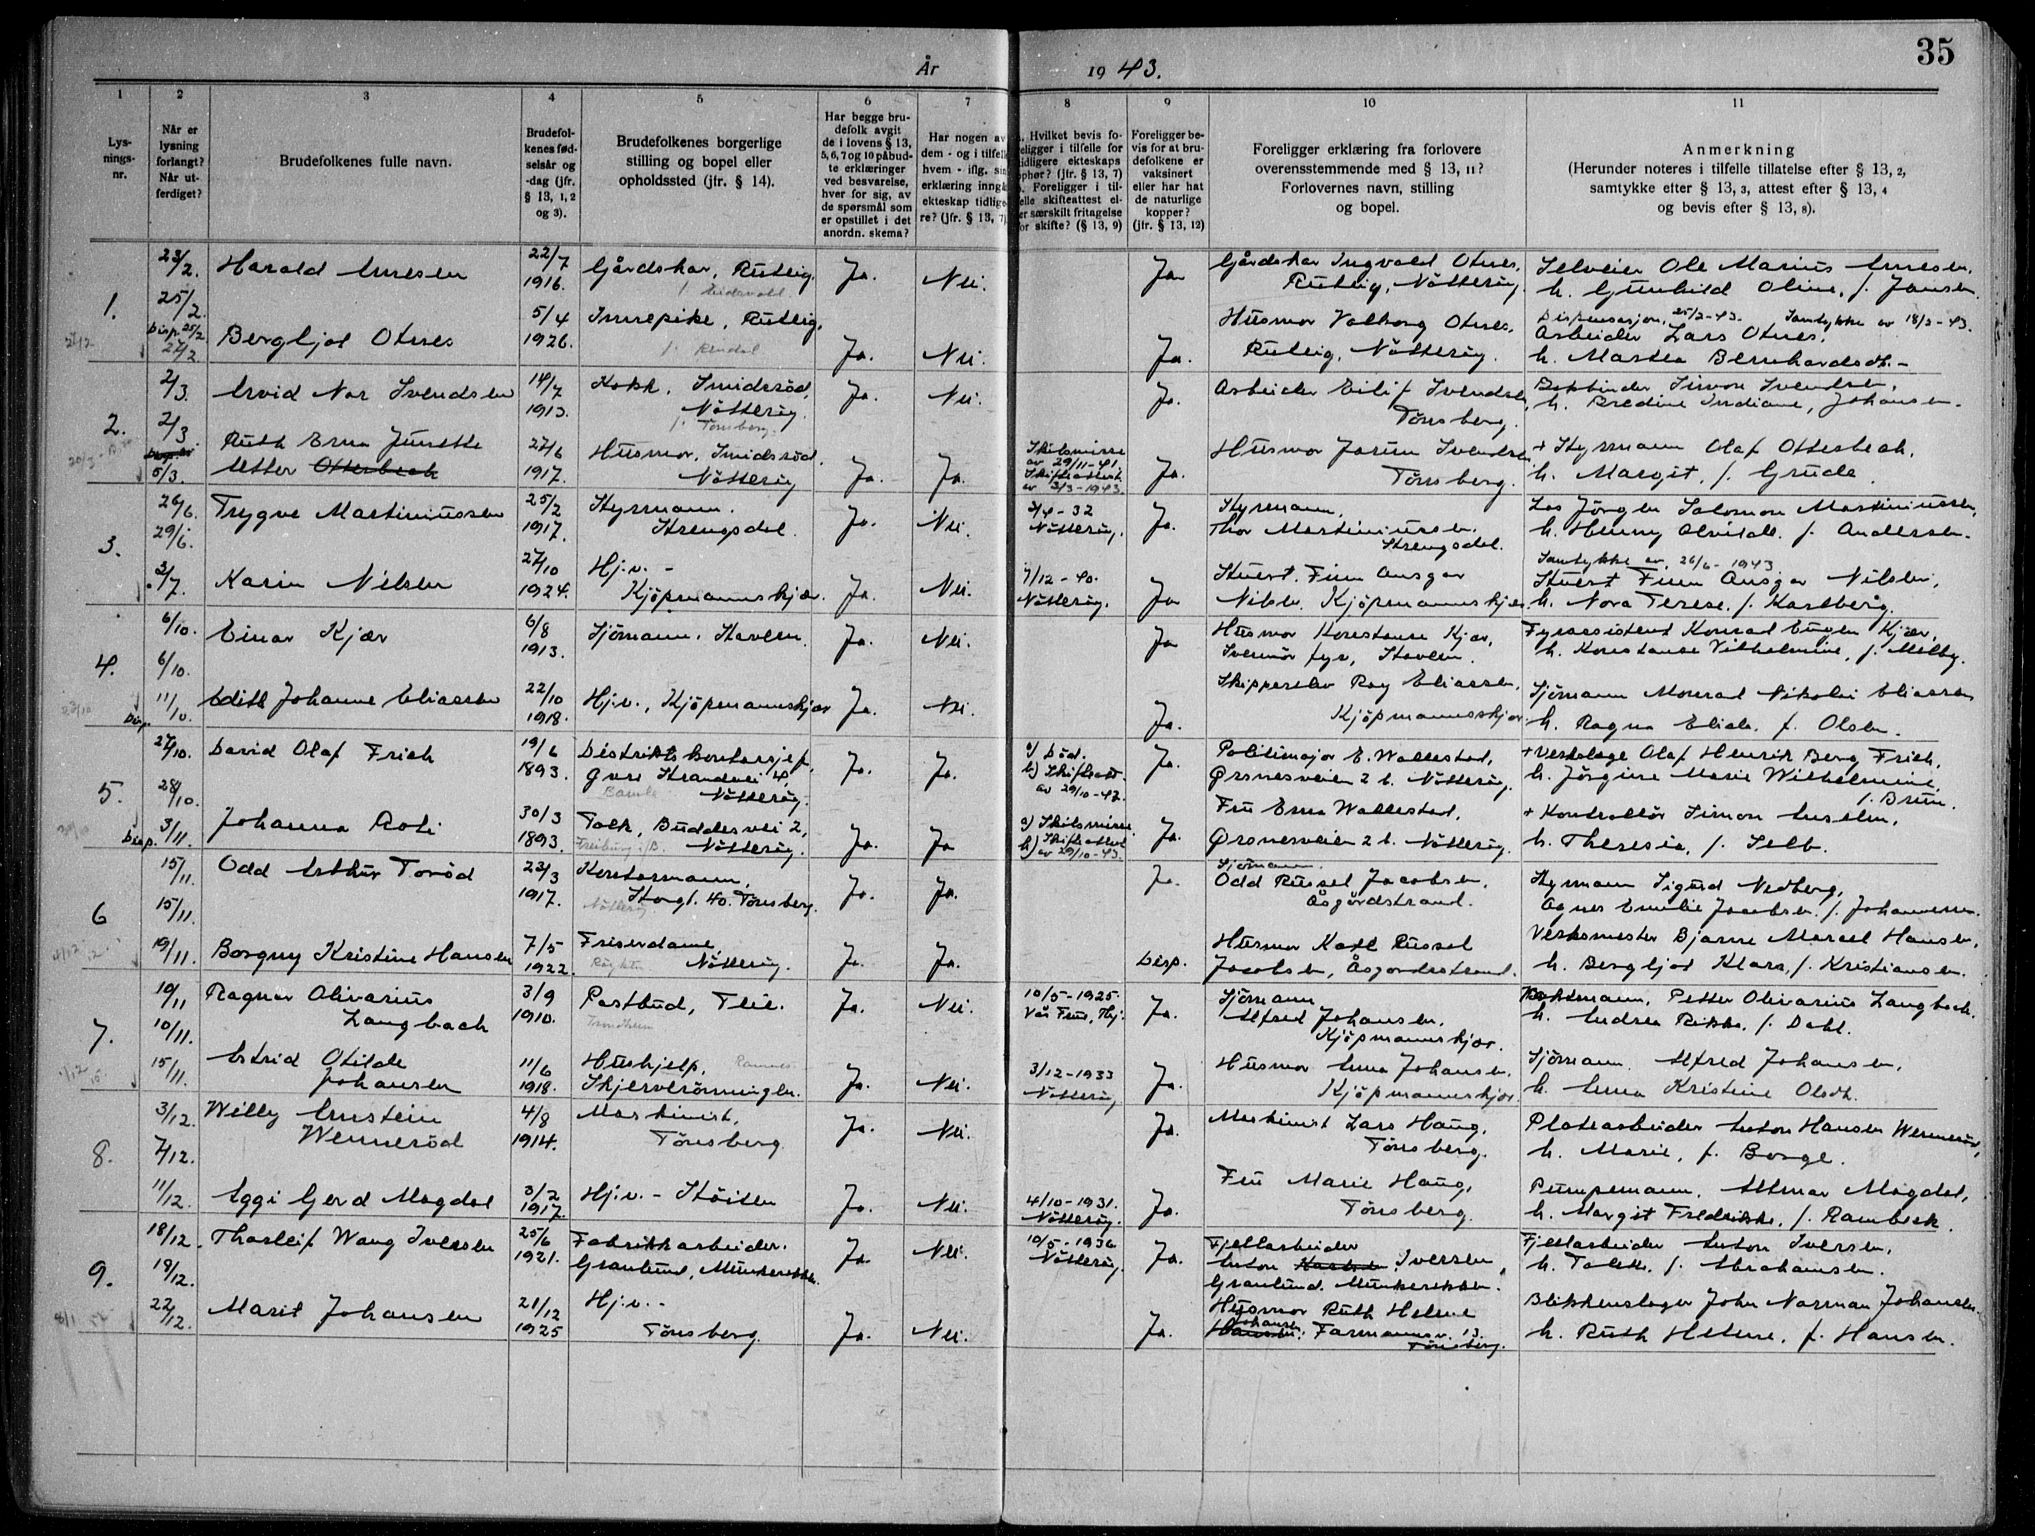 35
År 1943.
1 2 3 4 5 6 7 8 9 10 11
Lys-
nings-
nr.
Når er
lysning
forlangt?
Når ut-
ferdiget?
Brudefolkenes fulle navn.
Brudefol-
kenes fød-
selsår og
-dag (jfr.
§ 13, 1, 2
og 3).
Brudefolkenes borgerlige
stilling og bopel eller
opholdssted (jfr. § 14).
Har begge bru-
defolk avgit
de i lovens § 13,
5, 6, 7 og 10 påbud-
te erklæringer
ved besvarelse,
hver for sig, av
de spørsmål som
er opstillet i det
anordn. skema?
Har nogen av
dem - og i tilfelle
hvem - iflg. sin
erklæring inngåt
ekteskap tidlige-
re? (jfr. § 13, 7)
. Hvilket bevis fo-
religger i tilfelle for
tidligere ekteskaps
ophør? (jfr. § 13, 7)
. Foreligger i til-
felle skifteattest el-
er særskilt fritagelse
or skifte? (§ 13, 9)
Foreligger be-
vis for at bru-
defolkene er
vaksinert
eller har hat
de naturlige
kopper?
(jfr. § 13, 12)
Foreligger erklæring fra forlovere
overensstemmende med § 13, 11?
Forlovernes navn, stilling
og bopel.
Anmerkning
(Herunder noteres i tilfelle tillatelse efter § 13, 2,
samtykke efter § 13, 3, attest efter § 13, 4
og bevis efter § 13, 8).
1.
23/2.
25/2.
Disp. 25/2
27/2
Harald Arnesen
22/7
1916.
Gårdskar, Rutlig.
Ja.
Nei.
Ja
Gårdskar Ingvald Otnes.
Rutlig, Nøtterøy.
Selveier Ole Marius Arnesen.
h. Gunhild Oline, f. Jansen.
Bergljot Otnes
5/4
1926.
Innepike, Rutlig,
f. Rendal
Ja.
Nei.
Ja.
Husmor Valborg Otnes.
Rutlig, Nøtterøy.
Dispensasjon, 25/2-43. Samtykke av 18/2-43.
Arbeider Lars Otnes.
h. Martea Bernhardsdt. -
2.
2/3.
2/3
5/3.
Arvid Nor Svendsen
14/7
1913.
Kokk, Smidsrød,
Nøtterøy.
f. Tønsberg.
Ja.
Nei.
Ja.
Arbeider Eilif Svendsen,
Tønsberg.
Bokbinder Simon Svendsen,
h. Bredine Indiane, Johansen.
Ruth Erna Junette
Utter Otterbech
27/6
1917.
Husmor, Smidsrød.
Nøtterøy
Ja.
Ja.
Skilsmisse
av 29/11-41.
Skifteattest
av 3/3-1943.
Ja.
Husmor Jorun Svendsen
Tønsberg.
+ Styrmann Olaf Otterbech.
h. Margit, f. Grude.
3.
26/6.
29/6.
3/7.
Trygve Martiniussen
25/2
1917.
Styrmann.
Strengsdal.
Ja.
Nei.
3/4-32
Nøtterøy.
Ja.
Styrmann,
Thor Martiniussen.
Strengsdal.
Los Jörgen Salomon Martiniussen,
h. Henny Alvilde. f. Andersen.
Karin Nilsen
27/10
1924.
Hj.v. -
Kjøpmannskjær.
Ja.
Nei.
7/12-40.
Nøtterøy.
Ja
Stuert. Finn Ansgar
Nilsen. Kjøpmannskjær
Samtykke av, 26/6-1943
Stuert Finn Ansgar Nilsen,
h. Nora Terese. f. Karlberg.
4.
6/10.
6/10.
11/10.
Disp.
Einar Kjær
6/8
1913.
Sjömann. Stavern.
Ja.
Nei.
Ja
Husmor Konstanse Kjær,
Svennör fyr, Stavern.
Fyrassistent Konrad Eugen Kjær.
h. Konstanse Vilhelmine, f. Melby.
Edith Johanne Eliassen
22/10
1918.
Hj.v., Kjöpmannskjær
Ja.
Nei.
Ja.
Skipperelev Roy Eliassen.
Kjöpmannskjær.
Sjömann Monrad Nikolai Eliassen
h. Ragna Elida. f. Olsen.
5.
27/10.
28/10.
3/11.
Disp.
David Olaf Frich
19/6
1893.
Distriktskontorsjef.
Øvre Strandvei 4,
Bamle Nøtterøy.
Ja.
Ja.
a) Död.
b) Skifteatt.
av 29/10-43.
Ja.
Politimajor E. Wallestad,
Ørsnesveien 2 b. Nøtterøy.
+ Verkslege Olaf Henrik Berg Frich.
h. Jörgine Marie Wilhelmine,
f. Brun.
Johanna Roti
30/3
1893.
Tolk, Buddesvei 2,
Freiburg i/B. Nøtterøy.
Ja.
Ja
a) Skilsmisse.
b) Skifteattest
av 29/10-43.
Ja.
Fru Erna Wallestad.
Ørsnesveien 2 b. Nøtterøy.
+ Kontrollör Simon
h. Theresia, f. Selb.
6
15/11.
15/11.
19/11.
Odd Arthur Toröd
23/3
1917.
Kontormann,
Storgt. 40. Tønsberg.
Nøtterøy
Ja.
Ja.
Ja.
Sjömann
Odd Russel Jacobsen.
Åsgårdstrand.
Styrmann Sigurd Nedberg,
Agnes Emilie Jacobsen. f. Johannesen.
Borgny Kristine Hansen
7/5
1922.
Friserdame,
Nøtterøy.
Ja.
Ja.
Disp.
Husmor Kate Russel
Jacobsen, Åsgårdstrand.
Verksmester Bjarne Marcel Hansen,
h. Bergljot Klara, f. Kristiansen.
7.
10/11
10/11.
15/11.
Ragnar Olivarius
Langbach
3/9
1910.
Postbud, Teie.
Trondheim
Ja.
Nei.
10/5-1925.
Vår Frue, Thj.
Ja.
Sjömann
Alfred Johansen.
Kjøpmannskjær.
Petter Olivarius Langbach.
h. Andrea Rikke. f. Dahl.
Astrid Otilde
Johansen
11/6
1918.
Hushjelp,
Skjerverönningen.
Ja.
Nei.
3/12-1933
Nøtterøy
Ja.
Husmor Anna Johansen.
Kjøpmannskjær
Sjömann. Alfred Johansen.
h. Anna Kristine Olsdt.
8.
3/12.
7/12.
11/12.
Willy Arnstein
Wennerød
4/8
1914.
Maskinist,
Tønsberg.
Ja.
Nei.
Ja.
Maskinist Lars Haug.
Tønsberg.
Platearbeider Anton Hansen Wennerød,
h. Marie, f. Borge.
Aggi Gerd Magdal
3/2
1917.
Hj.v. - Støiten
Ja.
Nei.
4/10-1931.
Nøtterøy.
Ja.
Fru Marie Haug,
Tønsberg.
Pumpemann. Magdal,
h. Margit Fredrikke. f. Rambeck.
9.
18/12.
18/12.
22/12.
Thorleif Wang Iversen
25/6
1921.
Fabrikkarbeider.
Granlund, Munkerekka.
Ja.
Nei.
10/5-1936
Nøtterøy.
Ja.
Fjellarbeider
Anton Iversen,
Granlund. Munkerekken.
Fjellarbeider Anton Iversen,
h. Tolette. f. Abrahamsen.
Marit Johansen
21/12
1925
Hj.v. -
Tønsberg.
Ja.
Nei.
Ja.
Husmor Ruth Helene
Johansen
Hansen. Farmannsv. 13.
Tönsberg.
Blikkenslager John Norman Johansen.
h. Ruth Helene, f. Hansen.